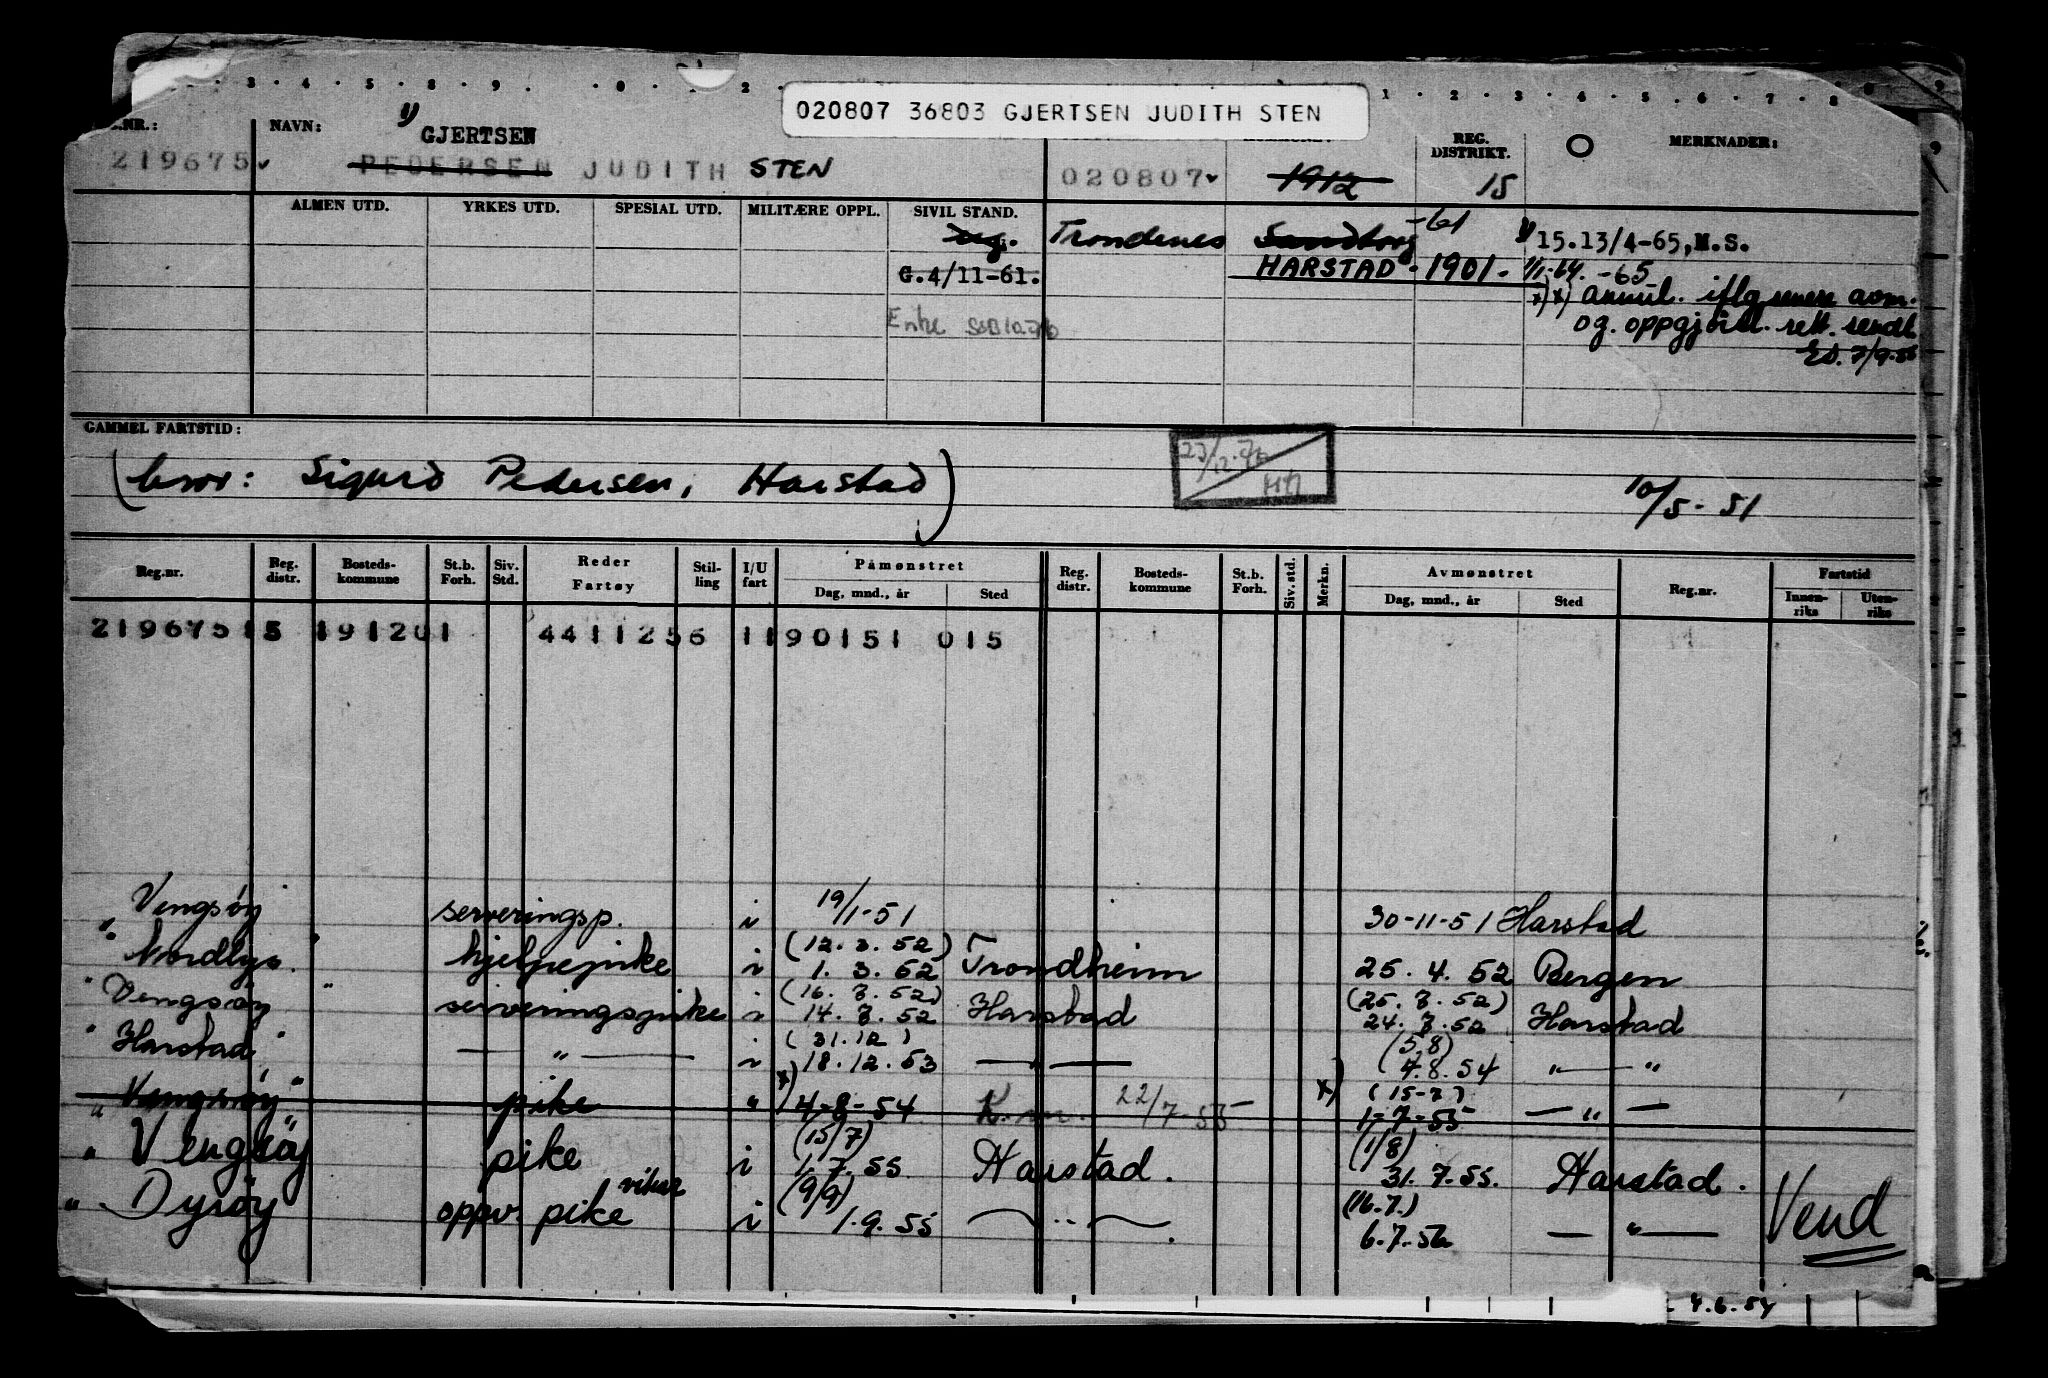 020807 36803 GJERTSEN JUDITH STEN
NR.: NAVN: 1) GJERTSEN REG. DISTRIKT. MERKNADER:
219675 PEDERSEN JUDITH STEN 020807 1912 15
ALMEN UTD. YRKES UTD. SPESIAL UTD. MILITÆRE OPPL. SIVIL STAND.
ug. Trondenes Sandtorg -61 1) 15.13/4-65, M.S.
G.4/11-61. HARSTAD - 1901. 1/1-64. -65
x) x) annul. iflg senere avm.
Enke og. oppgjøret. rett. sendt
Ed. 7/9-55
GAMMEL FARTSTID:
(bror: Sigurd Pedersen, Harstad)
10/5-51
Reg.nr. Reg. distr. Bosteds-kommune St.b. Forh. Siv. Std. Reder Fartøy Stil-ling I/U fart Påmønstret Dag, mnd., år Sted Reg. distr. Bosteds-kommune St.b. Forh. Siv. std. Merkn. Avmønstret Dag, mnd., år Sted Reg.nr. Fartstid Innen-riks Uten-riks
219675 15 191201 4411256 1190151 015
Vengsøy serveringsp. i 19/1-51 30-11-51 Harstad
" Nordlys " hjelpepike i (12.3.52) 1.3.52 Trondheim 25.4.52 Bergen
" Vengsøy " serveringspike i (16.7.52) 14.7.52 Harstad (25.7.52) 24.7.52 Harstad
" Harstad " — " — i (31.12) 18.12.53 — " — (5.8) 4.8.54 — " —
" Vengsøy " pike " x) 4-8-54 K.m. 22/7-55 x) (15-7) 1-7-55 — " —
" Vengsøy " pike i (15/7) 1.7.55 Harstad. (1/8) 31.7.55. Harstad.
" Dyrøy oppv. pike vikar i (9/9) 1.9.55 — " — (16.7.) 6.7.56 — " — Vend
4.6.54